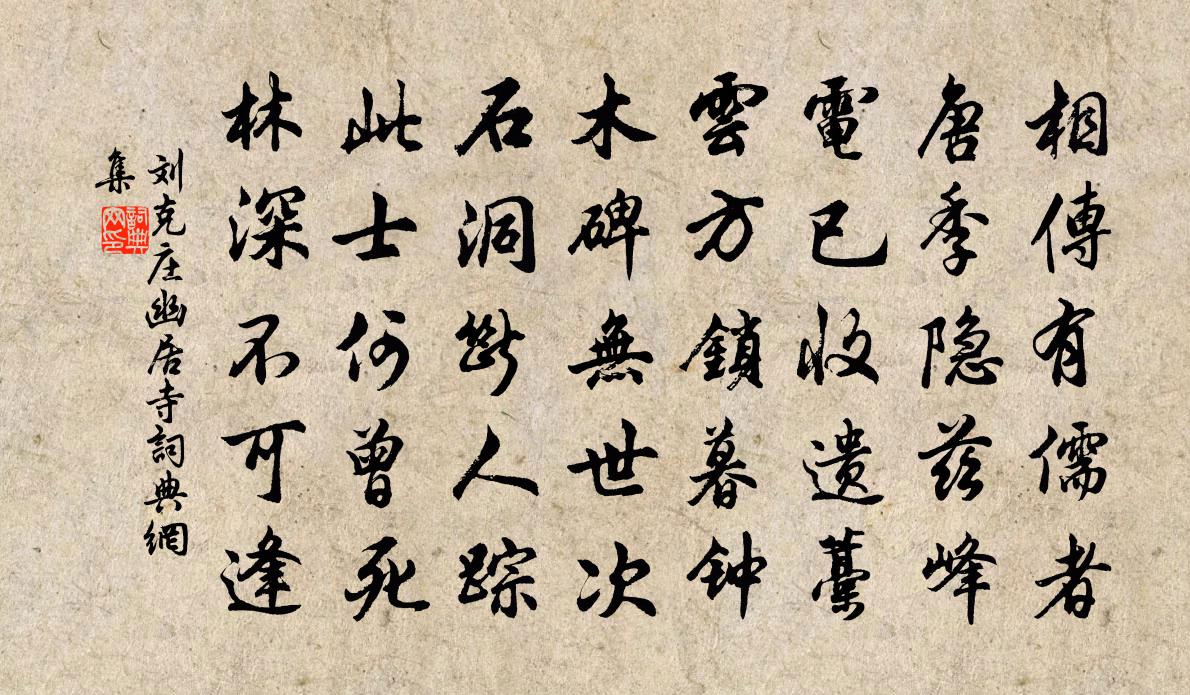 相傳有儒者
唐季隐兹峰
電已收遗藁
雲方鎖暮钟
木碑無世次
石洞斷人踪
此士何曾死
林深不可逢
刘克庄幽居寺詞典網
集
詞典网印